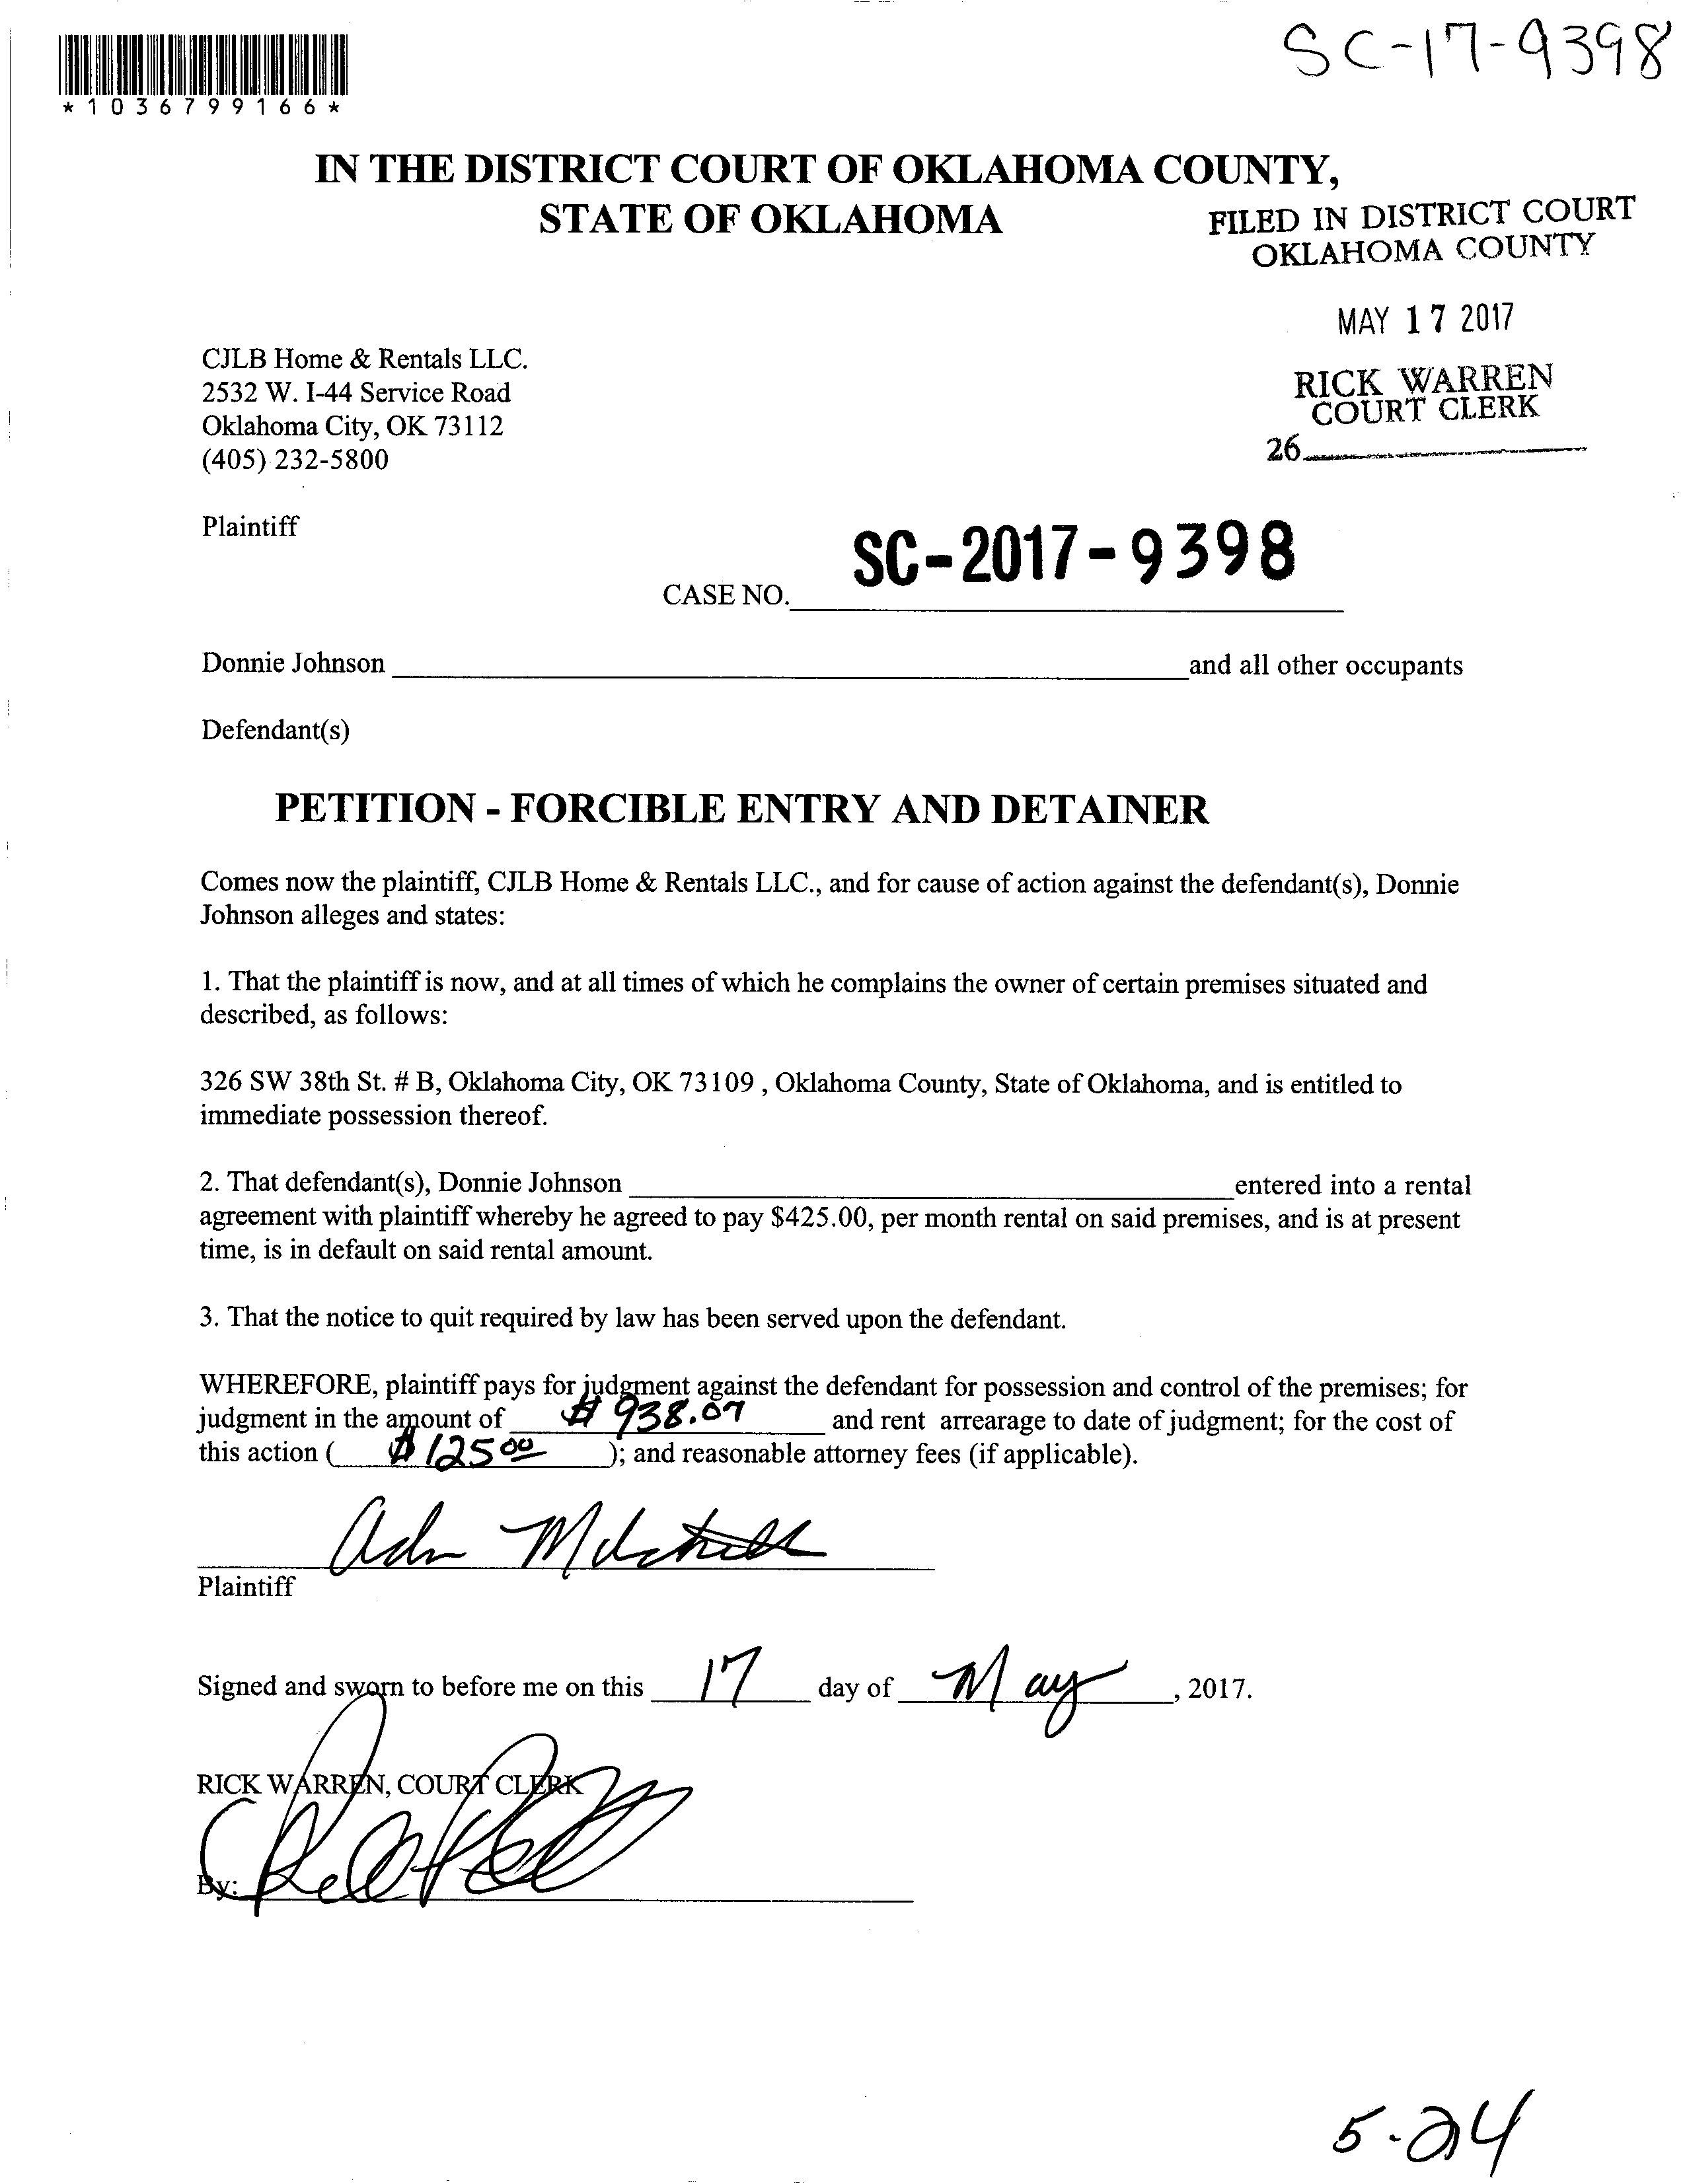 SC-17-9398
*1036799166*
IN THE DISTRICT COURT OF OKLAHOMA COUNTY,
STATE OF OKLAHOMA
FILED IN DISTRICT COURT
OKLAHOMA COUNTY
MAY 17 2017
RICK WARREN
COURT CLERK
26
CJLB Home & Rentals LLC.
2532 W. I-44 Service Road
Oklahoma City, OK 73112
(405) 232-5800
Plaintiff
SC-2017-9398
CASE NO.
Donnie Johnson and all other occupants
Defendant(s)
PETITION - FORCIBLE ENTRY AND DETAINER
Comes now the plaintiff, CJLB Home & Rentals LLC., and for cause of action against the defendant(s), Donnie
Johnson alleges and states:
1. That the plaintiff is now, and at all times of which he complains the owner of certain premises situated and
described, as follows:
326 SW 38th St. # B, Oklahoma City, OK 73109 , Oklahoma County, State of Oklahoma, and is entitled to
immediate possession thereof.
2. That defendant(s), Donnie Johnson entered into a rental
agreement with plaintiff whereby he agreed to pay $425.00, per month rental on said premises, and is at present
time, is in default on said rental amount.
3. That the notice to quit required by law has been served upon the defendant.
WHEREFORE, plaintiff pays for judgment against the defendant for possession and control of the premises; for
judgment in the amount of $ 938.07 and rent arrearage to date of judgment; for the cost of
this action ( $ 125 00 ); and reasonable attorney fees (if applicable).
Plaintiff
Signed and sworn to before me on this 17 day of May, 2017.
RICK WARREN, COURT CLERK
By:
5-24